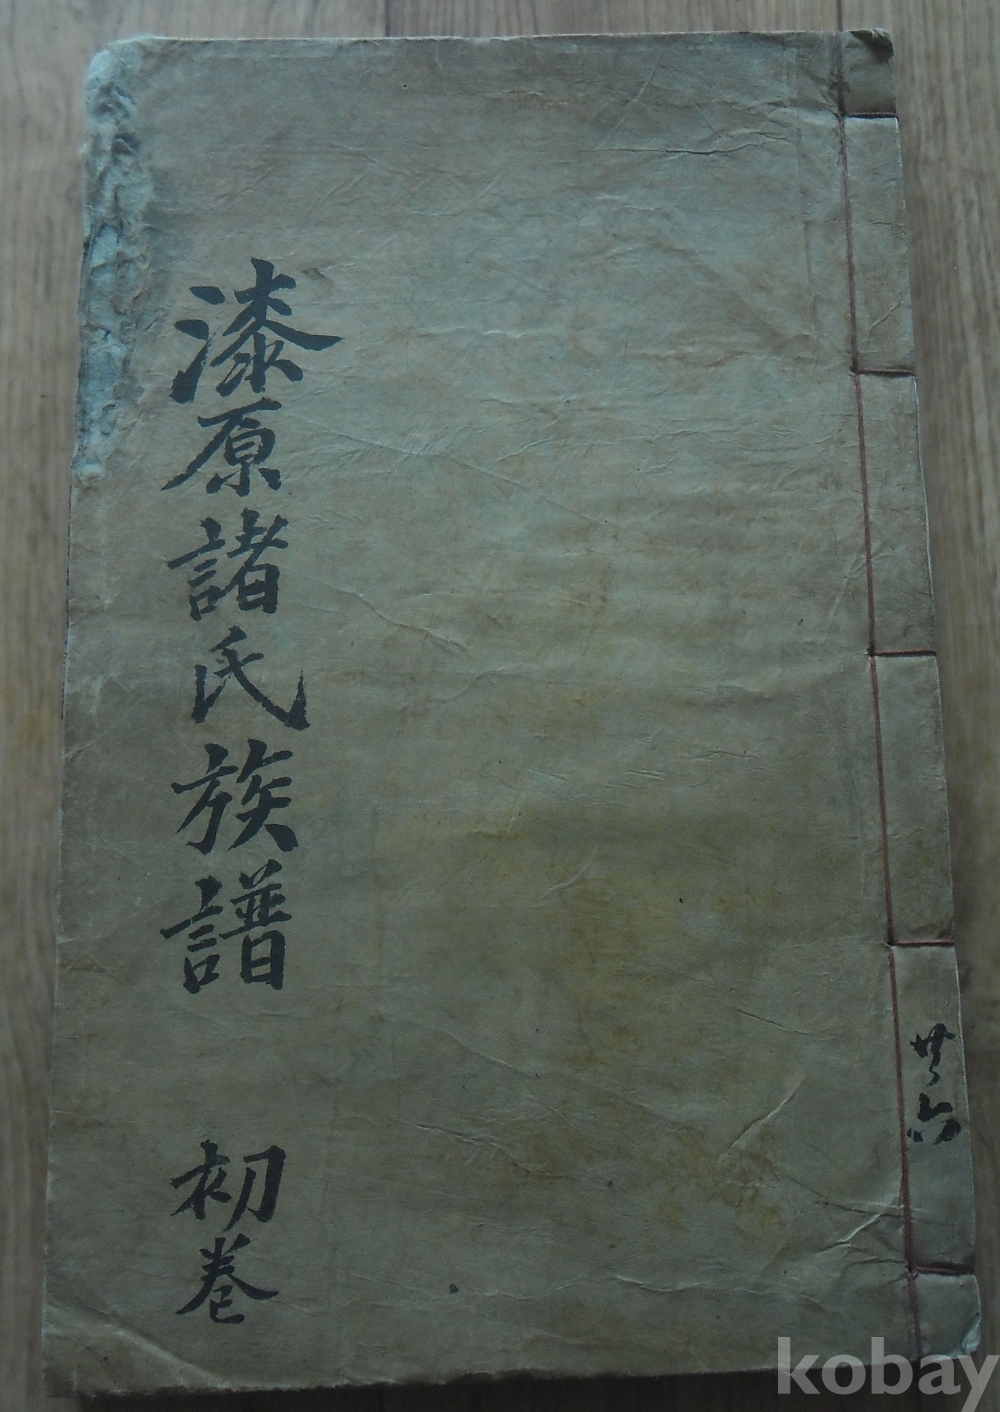 漆原諸氏族譜 初卷
共六
kobay